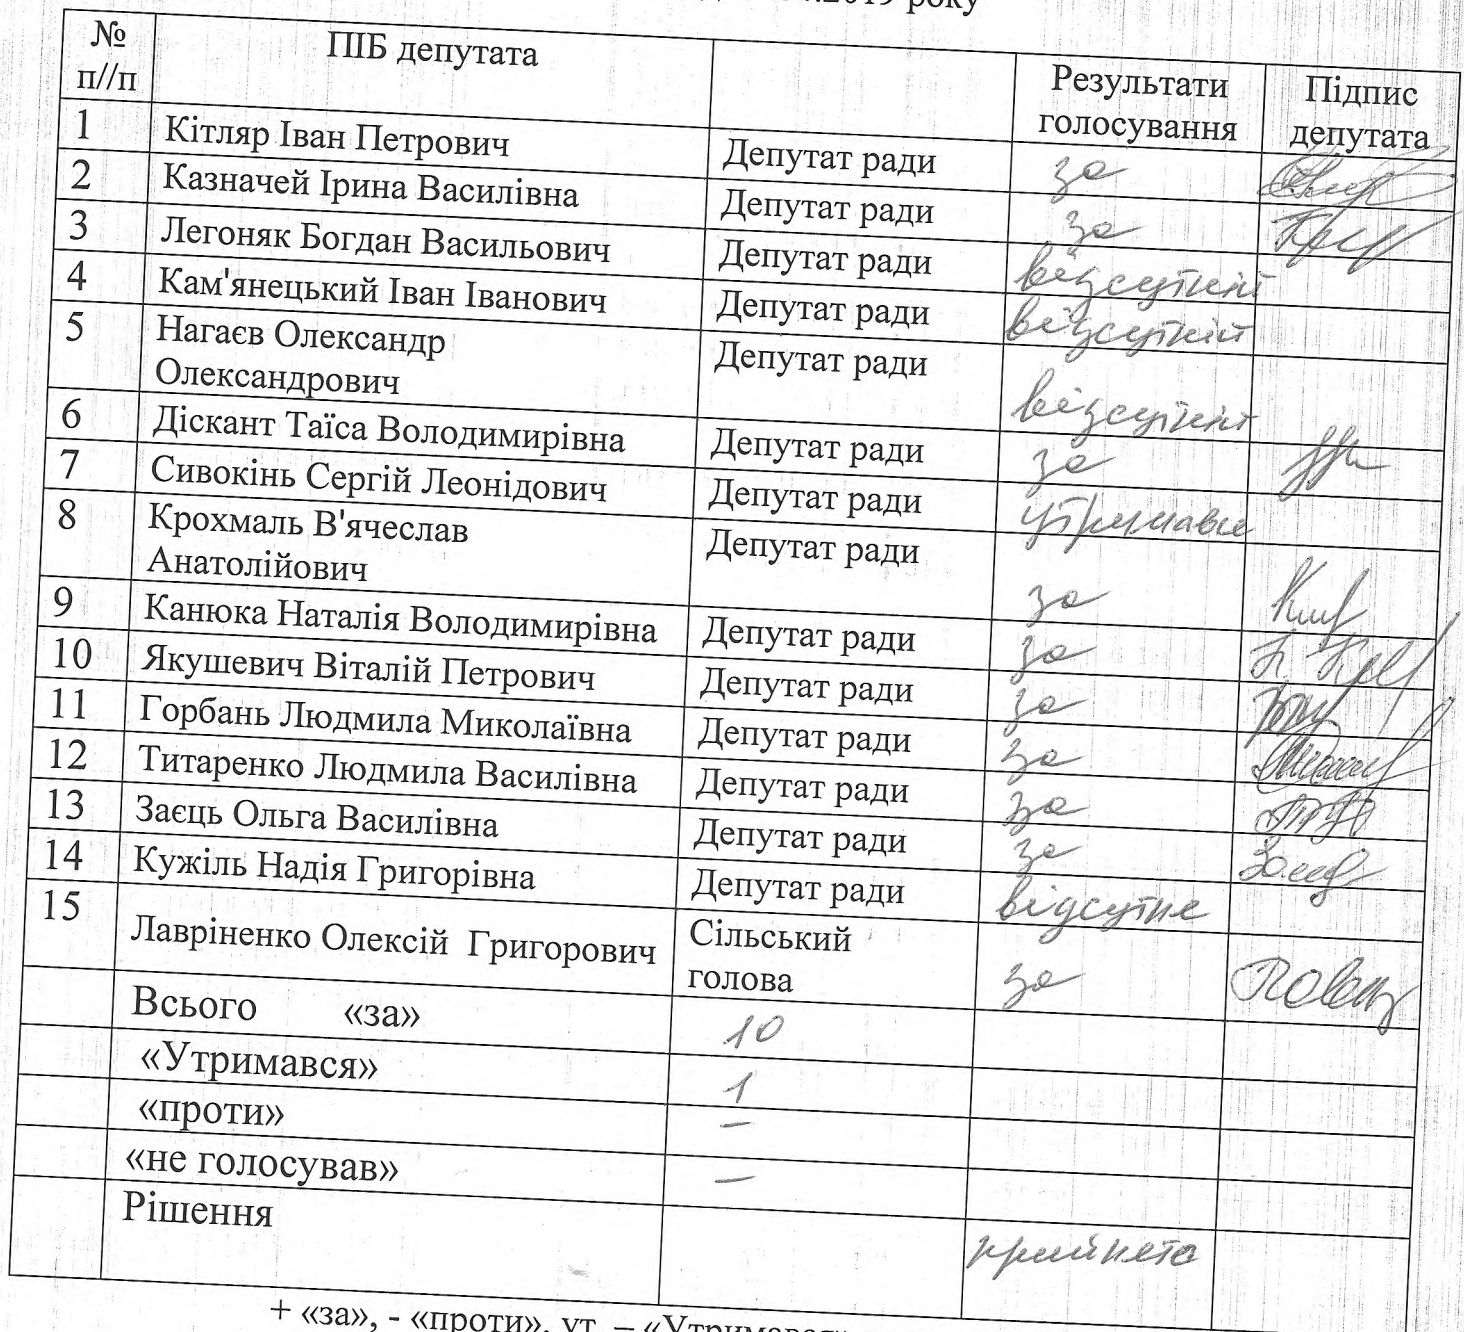 .2019 року
№ п//п ПІБ депутата Результати голосування Підпис депутата
1 Кітляр Іван Петрович Депутат ради за
2 Казначей Ірина Василівна Депутат ради за
3 Легоняк Богдан Васильович Депутат ради відсутній
4 Кам'янецький Іван Іванович Депутат ради відсутній
5 Нагаєв Олександр Депутат ради
Олександрович відсутній
6 Діскант Таїса Володимирівна Депутат ради за
7 Сивокінь Сергій Леонідович Депутат ради утримався
8 Крохмаль В'ячеслав Депутат ради
Анатолійович за
9 Канюка Наталія Володимирівна Депутат ради за
10 Якушевич Віталій Петрович Депутат ради за
11 Горбань Людмила Миколаївна Депутат ради за
12 Титаренко Людмила Василівна Депутат ради за
13 Заєць Ольга Василівна Депутат ради за
14 Кужіль Надія Григорівна Депутат ради відсутня
15 Лавріненко Олексій Григорович Сільський голова за
Всього «за» 10
«Утримався» 1
«проти» –
«не голосував» –
Рішення прийнято
+ «за», - «проти», ут – «Утримався»